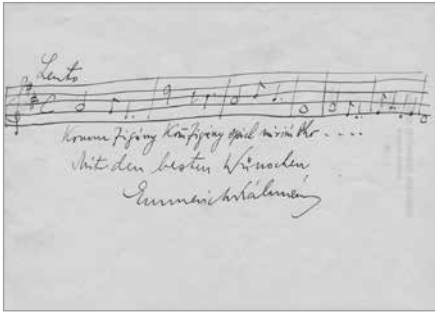 Lento
Komm Zigány Komm Zigány spiel mir ins Ohr . . . .
Mit den besten Wünschen
Emmerich Kálmán